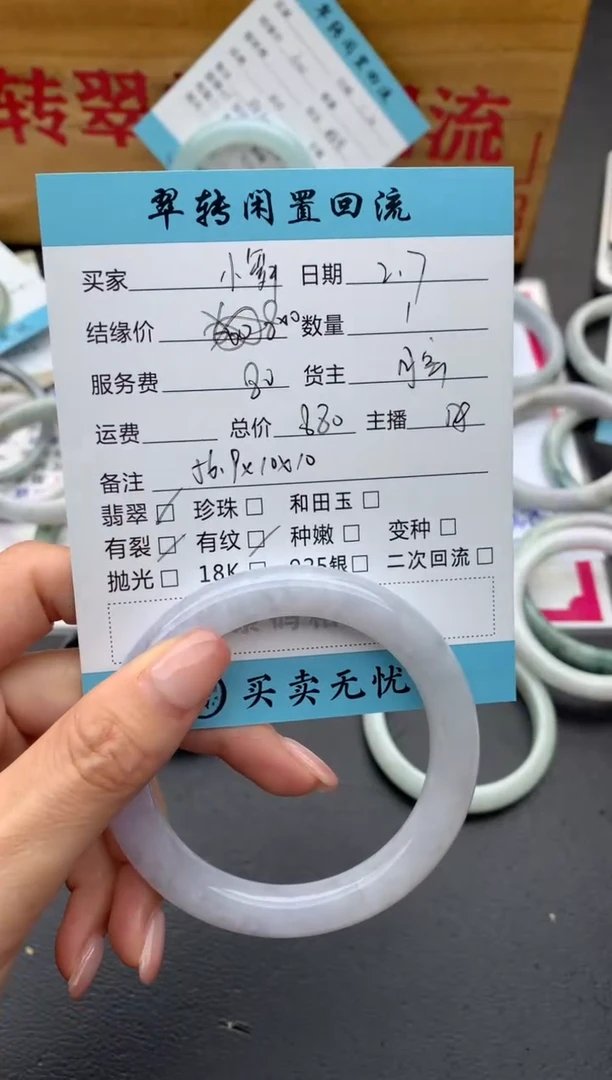 转翠
流
翠转闲置回流
买家 小 日期 2.7
结缘价 数量 1
服务费 80 货主
运费 总价 880 主播
备注 56.9x10x10
翡翠 珍珠 和田玉
有裂 有纹 种嫩 变种
抛光 18K 925银 二次回流
买卖无忧